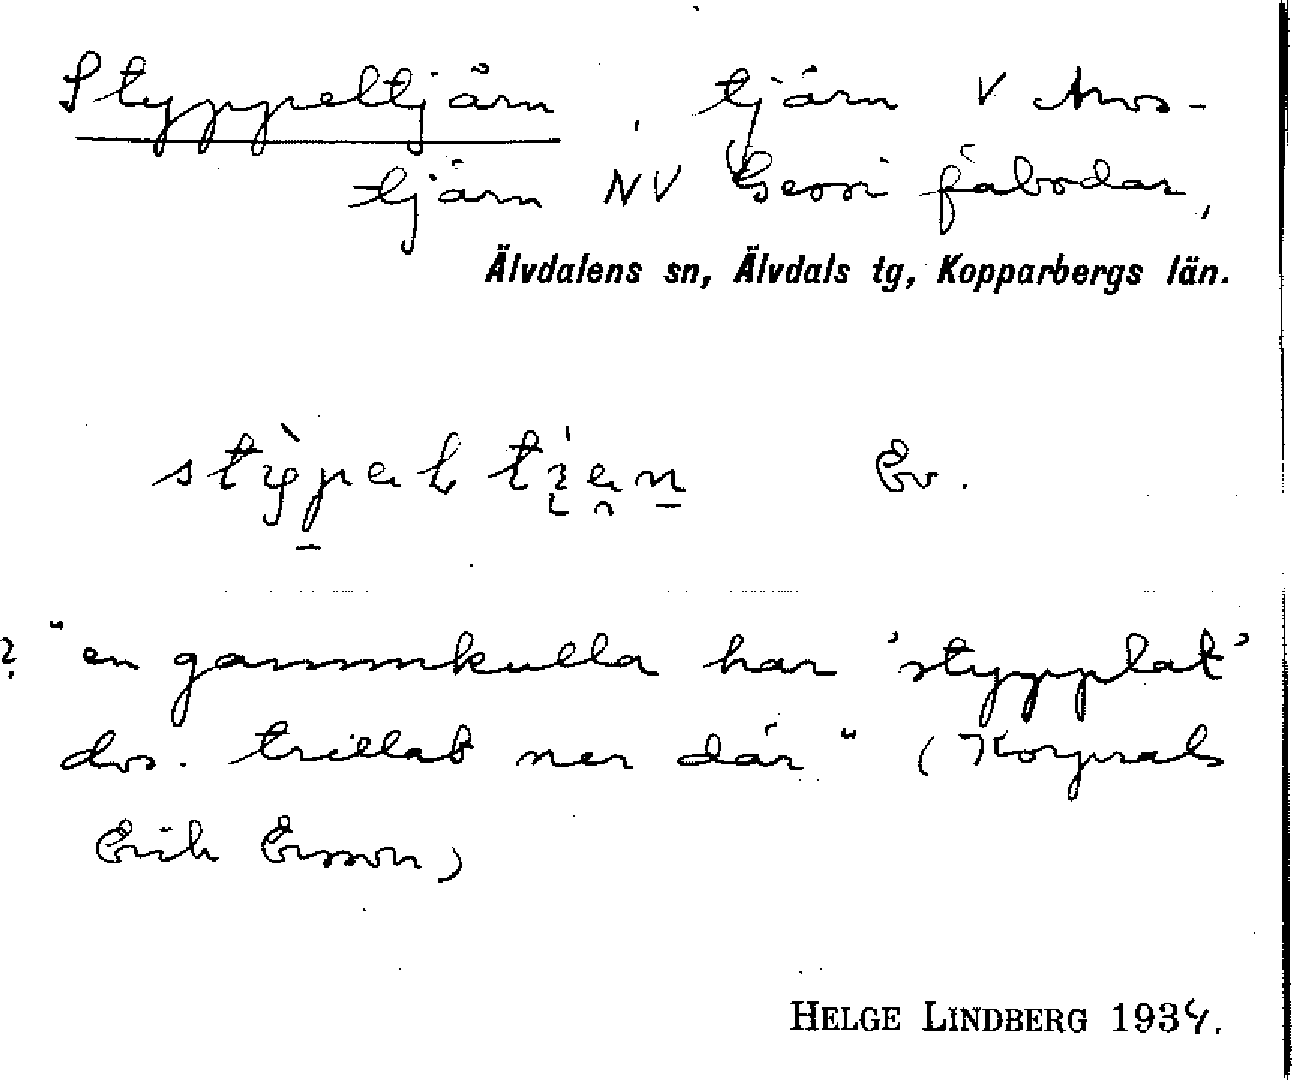 Styppeltjärn, tjärn V Anos-
tjärn NV Gessi fäbodar,
Älvdalens sn, Älvdals tg, Kopparbergs län.
Ev.
? "en gammkulla har 'stypplat'
dvs. trillat ner där" (Korprals
Erik Ersson)
HELGE LINDBERG 1934.